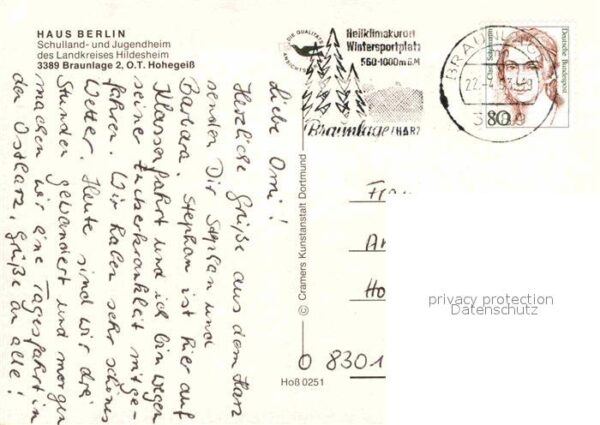 HAUS BERLIN
Schulland- und Jugendheim
des Landkreises Hildesheim
3389 Braunlage 2, O.T. Hohegeiß
Liebe Omi!
Herzliche Grüße aus dem Harz
senden Dir Stephan und
Barbara. Stephan ist hier auf
Klassenfahrt und ich bin wegen
seiner Zuckerkrankheit mitge-
fahren. Wir haben sehr schönes
Wetter. Heute sind wir drei
Stunden gewandert und morgen
machen wir eine Tagesfahrt in
den Ostharz, Grüße an alle!
DIE QUALITÄTS
ANSICHTS
© Cramers Kunstanstalt Dortmund
Hoß 0251
Heilklimakurort
Wintersportplatz
560-1000m ü.M
Braunlage/HARZ
BRAUNLAGE
22.-4.
Deutsche Bundespost
80
Fra
An
Ho
O 8301
privacy protection
Datenschutz